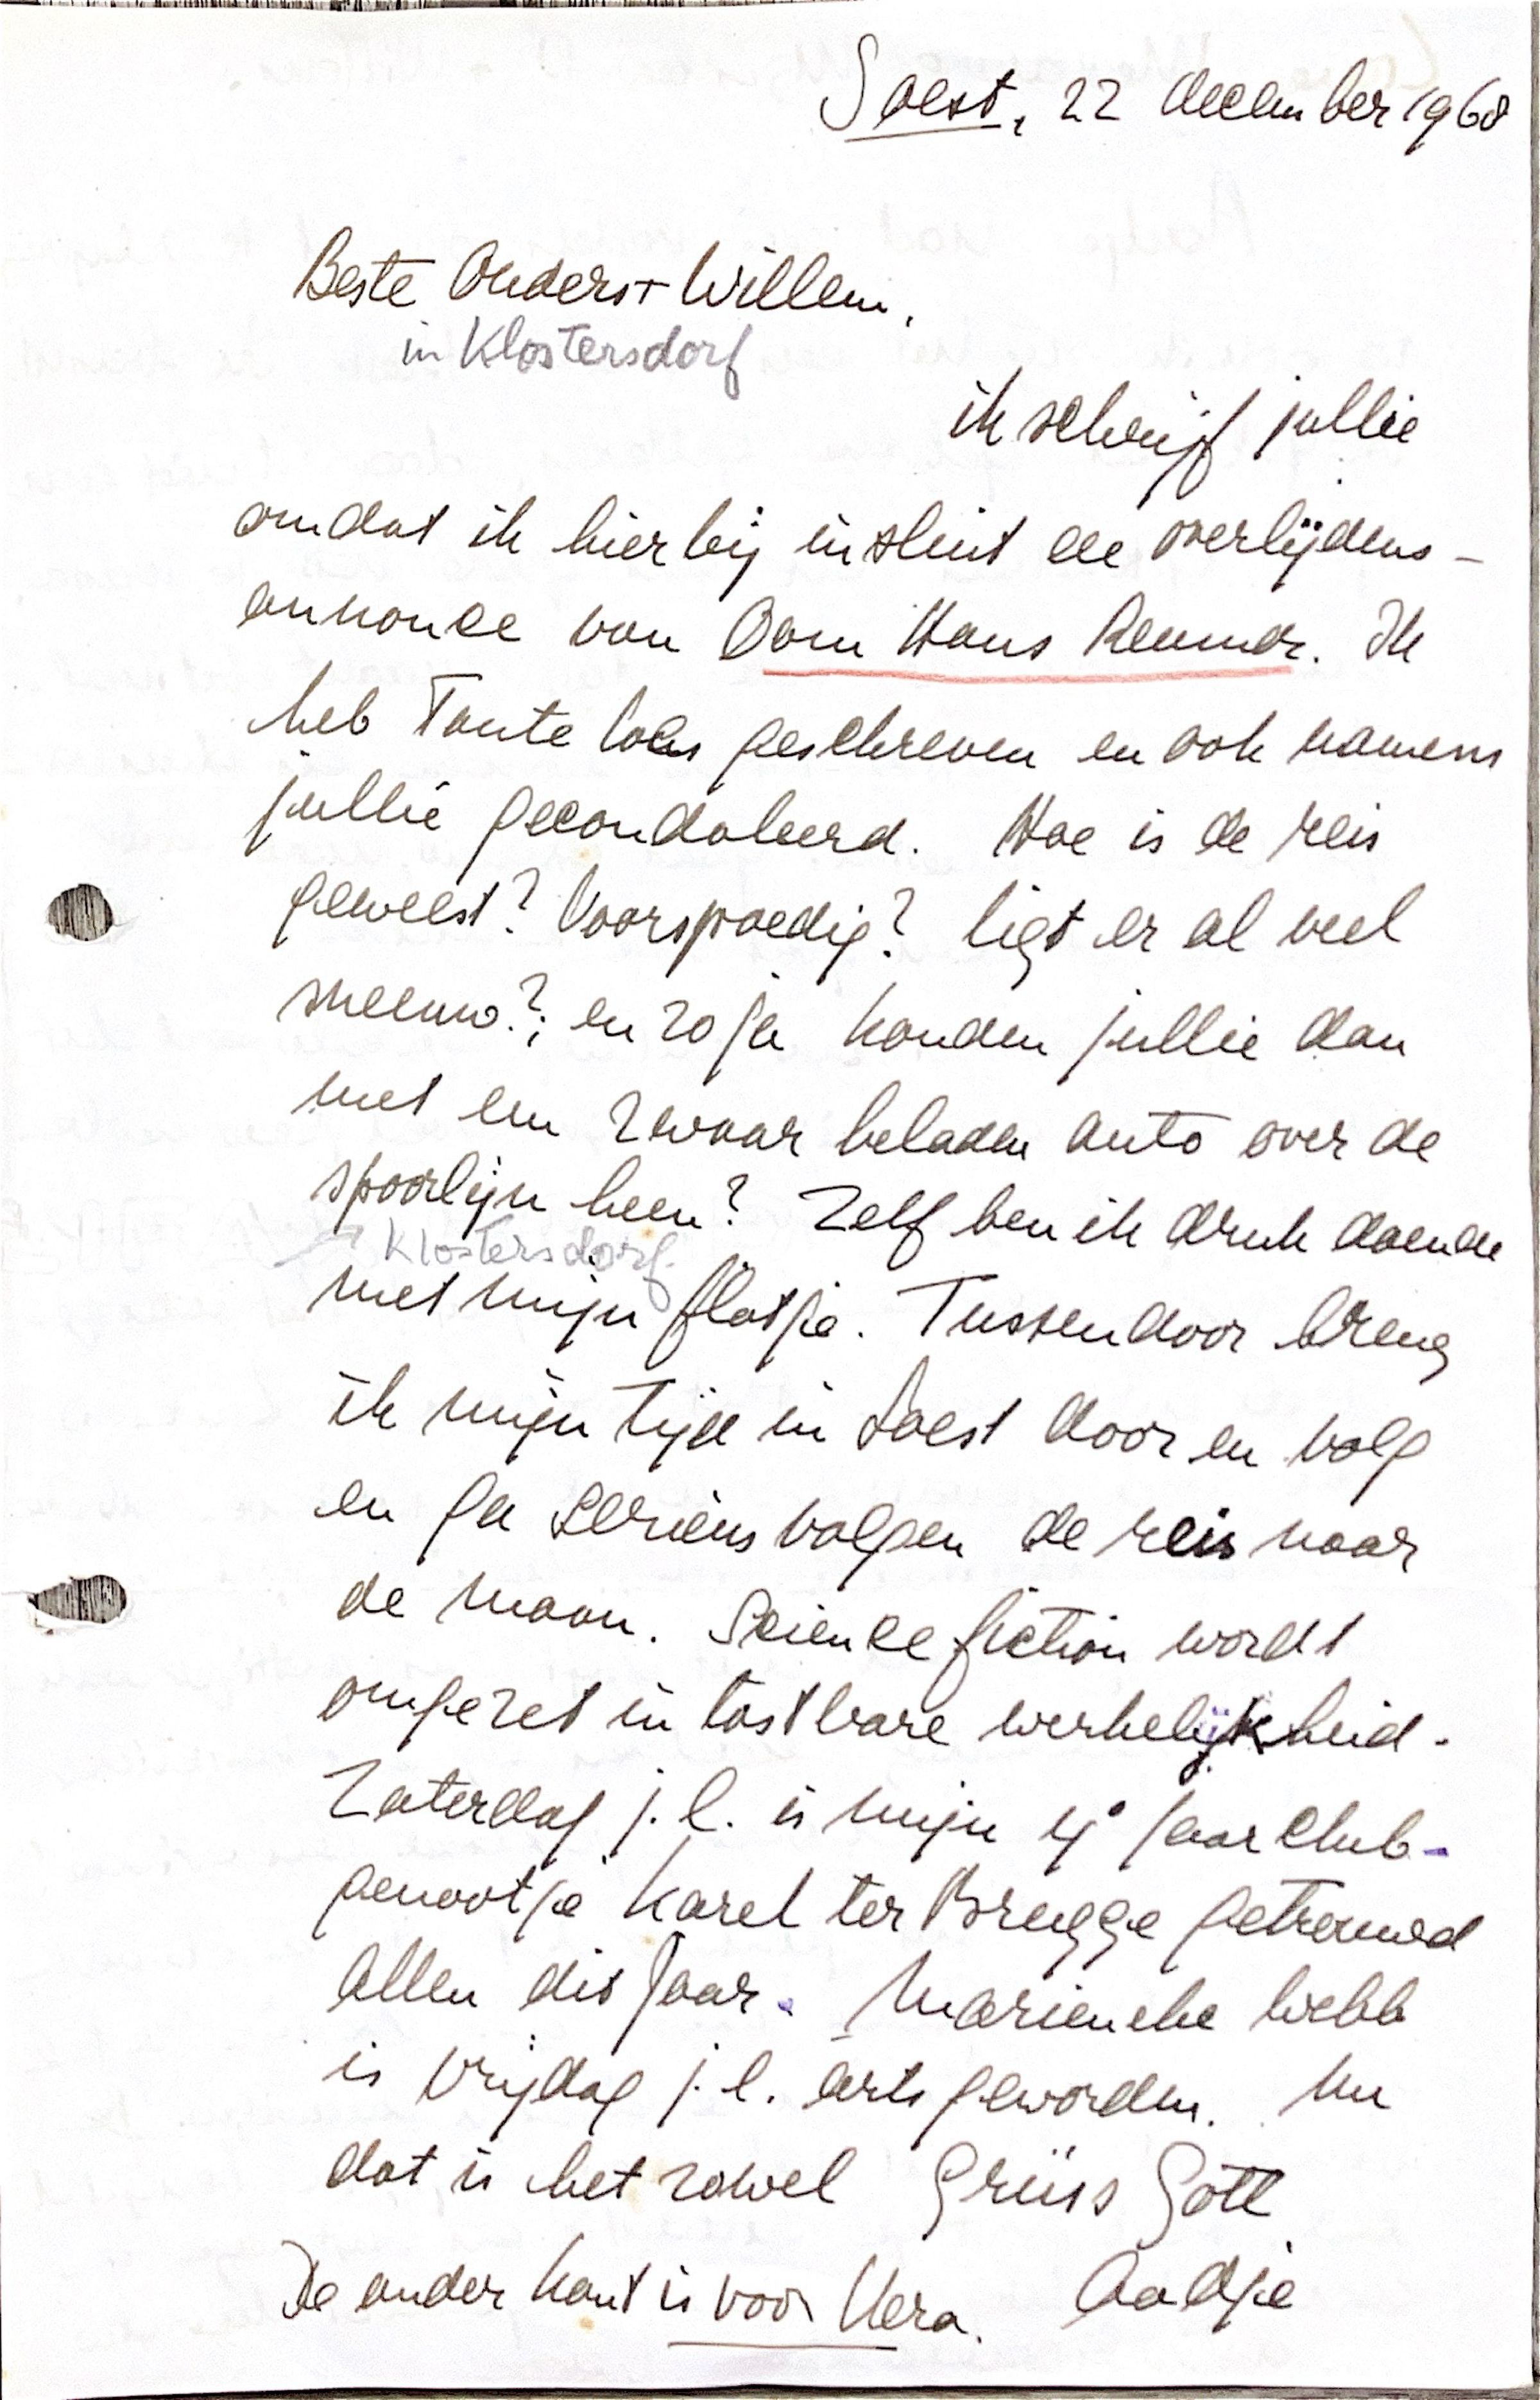 Soest, 22 december 1968
Beste Ouders + Willem,
in Klostersdorf
ik schrijf jullie
omdat ik hierbij insluit de overlijdens-
annonce van Oom Hans Reumer. Ik
heb Tante Loes geschreven en ook namens
jullie gecondoleerd. Hoe is de reis
geweest? Voorspoedig? ligt er al veel
sneeuw?; en zo ja konden jullie dan
met een zwaar beladen auto over de
spoorlijn heen? Zelf ben ik druk doende
Klostersdorf.
met mijn flatje. Tussendoor breng
ik mijn tijd in Soest door en volg
en ga serieus volgen de reis naar
de maan. Science fiction wordt
omgezet in tastbare werkelijkheid.
Zaterdag j.l. is mijn 4e jaarclub-
genootje Karel ter Brugge getrouwd
allen dit jaar. Marieneke Webb
is vrijdag j.l. arts geworden. Nu
dat is het zowel Grüss Gott
De ander kant is voor Vera. Aadje